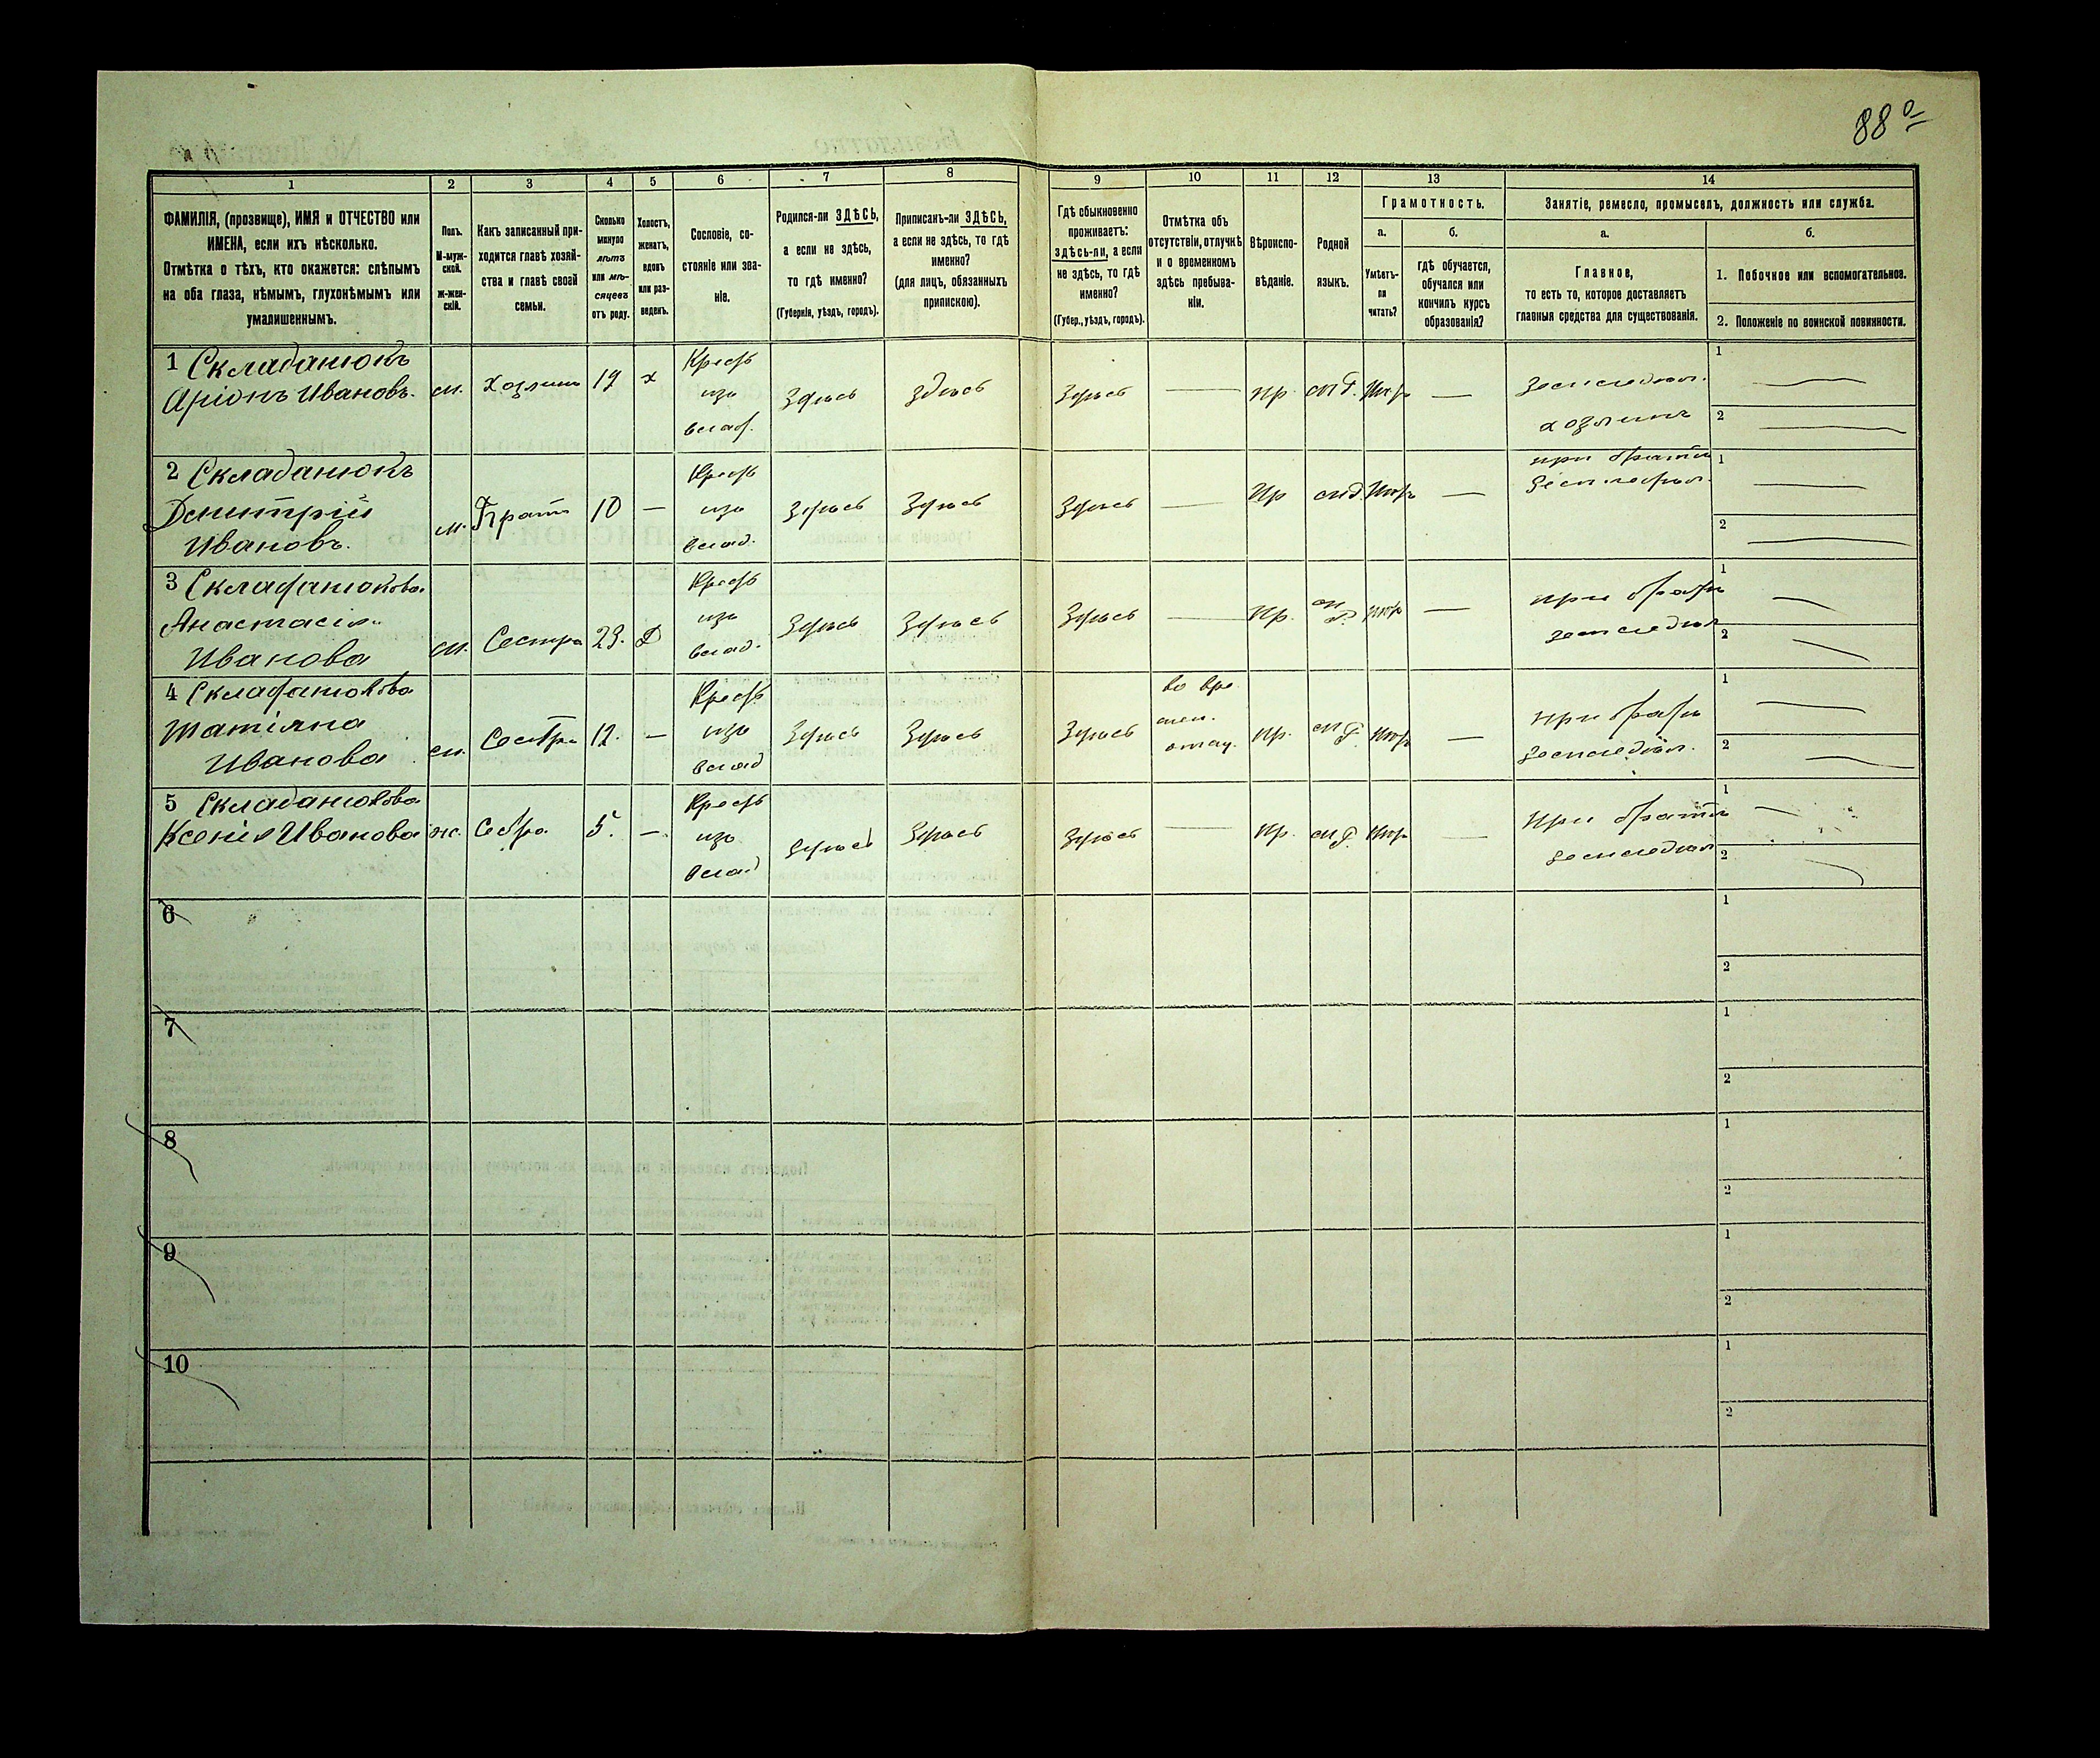 88
1
2
3
4
5
6
7
8
9
10
11
12
13
14
ФАМИЛІЯ, (прозвище), ИМЯ и ОТЧЕСТВО или
ИМЕНА, если ихъ нѣсколько.
Отмѣтка о тѣхъ, кто окажется: слѣпымъ
на оба глаза, нѣмымъ, глухонѣмымъ или
умалишеннымъ.
Полъ.
М-муж-
ской.
Ж-жен-
скій.
Какъ записанный при-
ходится главѣ хозяй-
ства и главѣ своей
семьи.
Сколько
минуло
лѣтъ
или мѣ-
сяцевъ
отъ роду.
Холостъ,
женатъ,
вдовъ
или раз-
веденъ.
Сословіе, со-
стояніе или зва-
ніе.
Родился-ли ЗДѢСЬ,
а если не здѣсь,
то гдѣ именно?
(Губернія, уѣздъ, городъ).
Приписанъ-ли ЗДѢСЬ,
а если не здѣсь, то гдѣ
именно?
(для лицъ, обязанныхъ
припискою).
Гдѣ обыкновенно
проживаетъ:
здѣсь-ли, а если
не здѣсь, то гдѣ
именно?
(Губер., уѣздъ, городъ).
Отмѣтка объ
отсутствіи, отлучкѣ
и о временномъ
здѣсь пребыва-
ніи.
Вѣроиспо-
вѣданіе.
Родной
языкъ.
Грамотность.
а.
Умѣетъ-
ли
читать?
б.
гдѣ обучается,
обучался или
кончилъ курсъ
образованія?
Занятіе, ремесло, промыселъ, должность или служба.
а.
Главное,
то есть то, которое доставляетъ
главныя средства для существованія.
б.
1. Побочное или вспомогательное.
2. Положеніе по воинской повинности.
1 Складанюкъ
Аріонъ Ивановъ.
м.
хозяинъ
19
х
Крест
изъ
влад.
Здѣсь
Здѣсь
Здѣсь
пр.
Земледѣл.
хозяинъ
1
2
2 Складанюкъ
Дмитрій
Ивановъ.
м.
Братъ
10
—
Крест
изъ
влад.
Здѣсь
Здѣсь
Здѣсь
пр
—
при братѣ
Земледѣл.
1
2
3 Складанюкова
Анастасія
Иванова
м.
Сестра
23.
Д
Крест
изъ
влад.
Здѣсь
Здѣсь
Здѣсь
пр.
—
при братѣ
земледѣл
1
2
4 Складанюкова
Татіяна
Иванова
м.
Сестра
12.
—
Крест
изъ
влад
Здѣсь
Здѣсь
Здѣсь
во вре
мен.
отлуч.
пр.
—
при братѣ
земледѣл.
1
2
5 Складанюкова
Ксенія Иванова
ж.
Сестра
5.
—
Крест
изъ
влад
Здѣсь
Здѣсь
Здѣсь
пр.
—
при братѣ
земледѣл
1
2
6
1
2
7
1
2
8
1
2
9
1
2
10
1
2